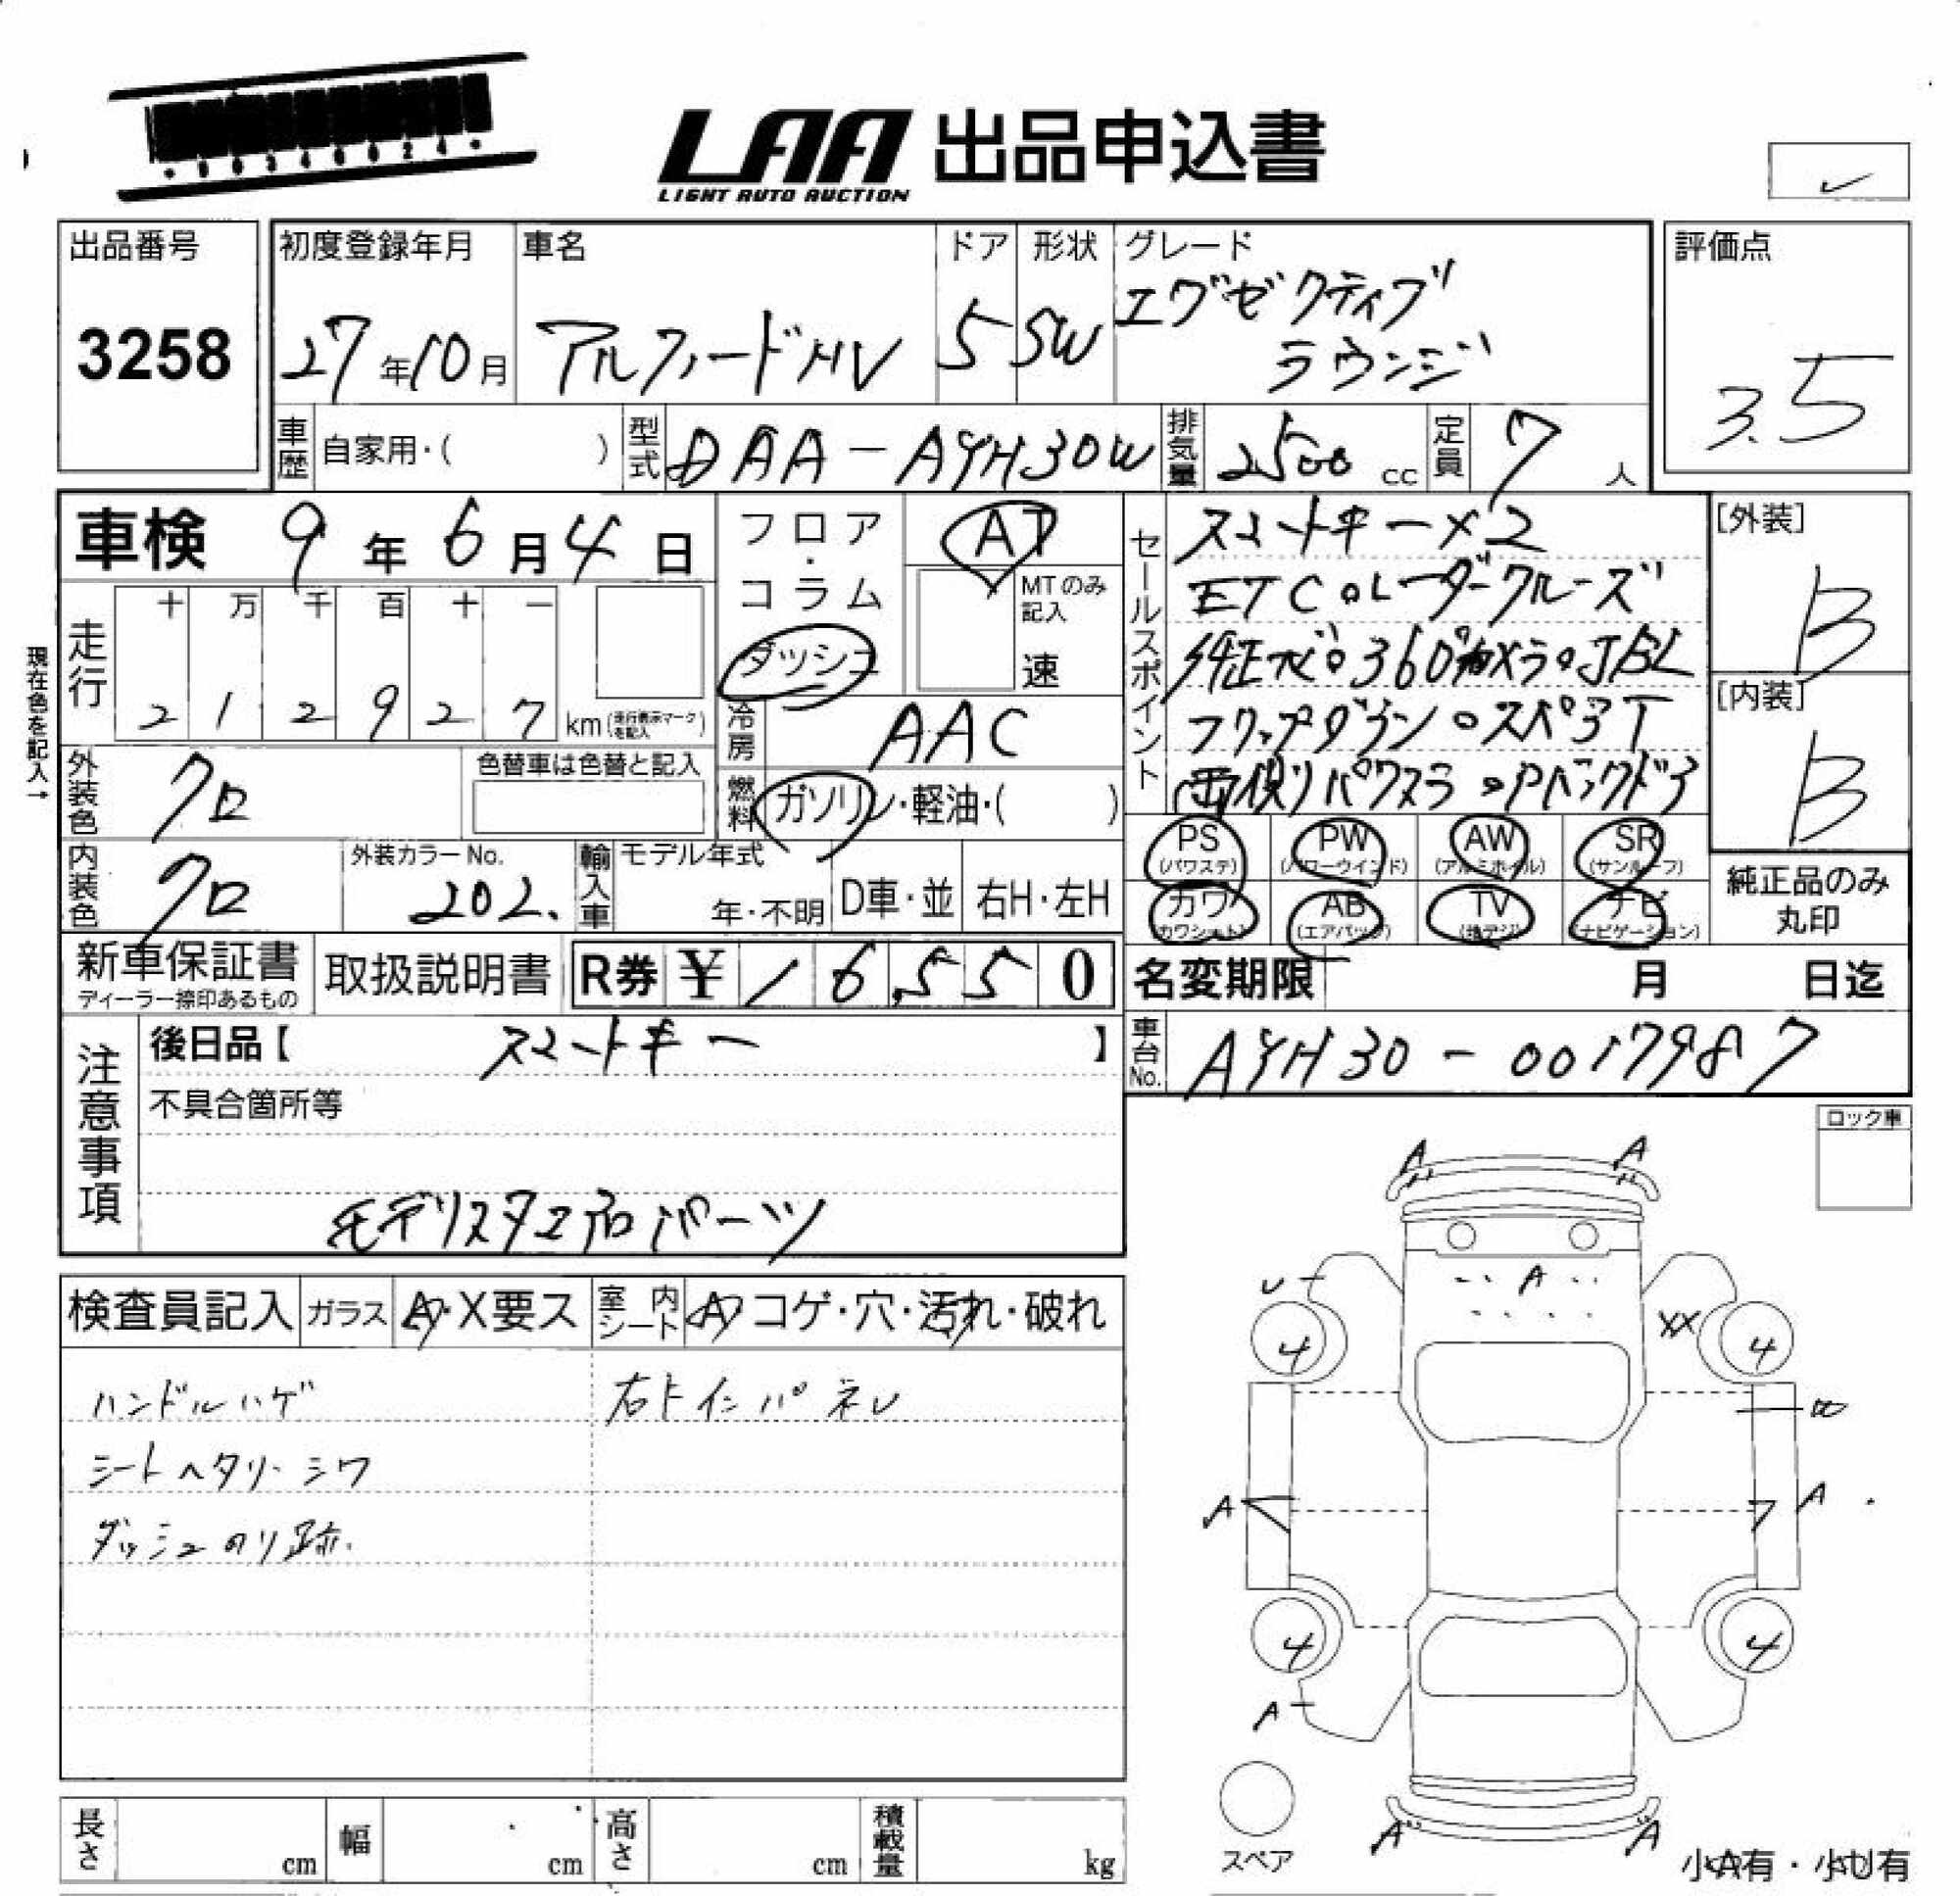 LAA 出品申込書
LIGHT AUTO AUCTION
出品番号
3258
初度登録年月
27年10月
車名
アルファードHV
ドア
5
形状
SW
グレード
エグゼクティブ
ラウンジ
評価点
3.5
車歴
自家用・(　　)
型式
DAA-AYH30W
排気量
2500cc
定員
7人
車検 9年6月4日
フロア・コラム
ダッシュ
AT
MTのみ記入
速
現在色を記入→
走行
十 万 千 百 十 一
2 1 2 9 2 7 km (走行表示マークを記入)
冷房
AAC
外装色
クロ
色替車は色替と記入
燃料
ガソリン・軽油・(　　)
内装色
クロ
外装カラーNo.
202.
輸入車
モデル年式
年・不明
D車・並
右H・左H
セールスポイント
スマートキー×2
ETC。レーダークルーズ
純正ナビ。360°カメラ。JBL
フリップダウン。スペアT
両側パワスラ。Pバックドア
[外装]
B
[内装]
B
PS (パワステ)
PW (パワーウインド)
AW (アルミホイル)
SR (サンルーフ)
カワ (カワシート)
AB (エアバック)
TV (地デジ)
ナビ (ナビゲーション)
純正品のみ
丸印
新車保証書
ディーラー捺印あるもの
取扱説明書
R券 ¥16,550
名変期限　月　日迄
車台No.
AYH30-0017987
注意事項
後日品【 スマートキー 】
不具合箇所等
モデリスタエアロパーツ
ロック車
検査員記入
ガラス
A・X要ス
室内シート
A コゲ・穴・汚れ・破れ
ハンドルハゲ
シートヘタリ・シワ
ダッシュのり跡.
右トインパネU
A A
U A
XX
4 4
A A
4 4
A
A A
スペア
小A有・小U有
長さ cm
幅 cm
高さ cm
積載量 kg